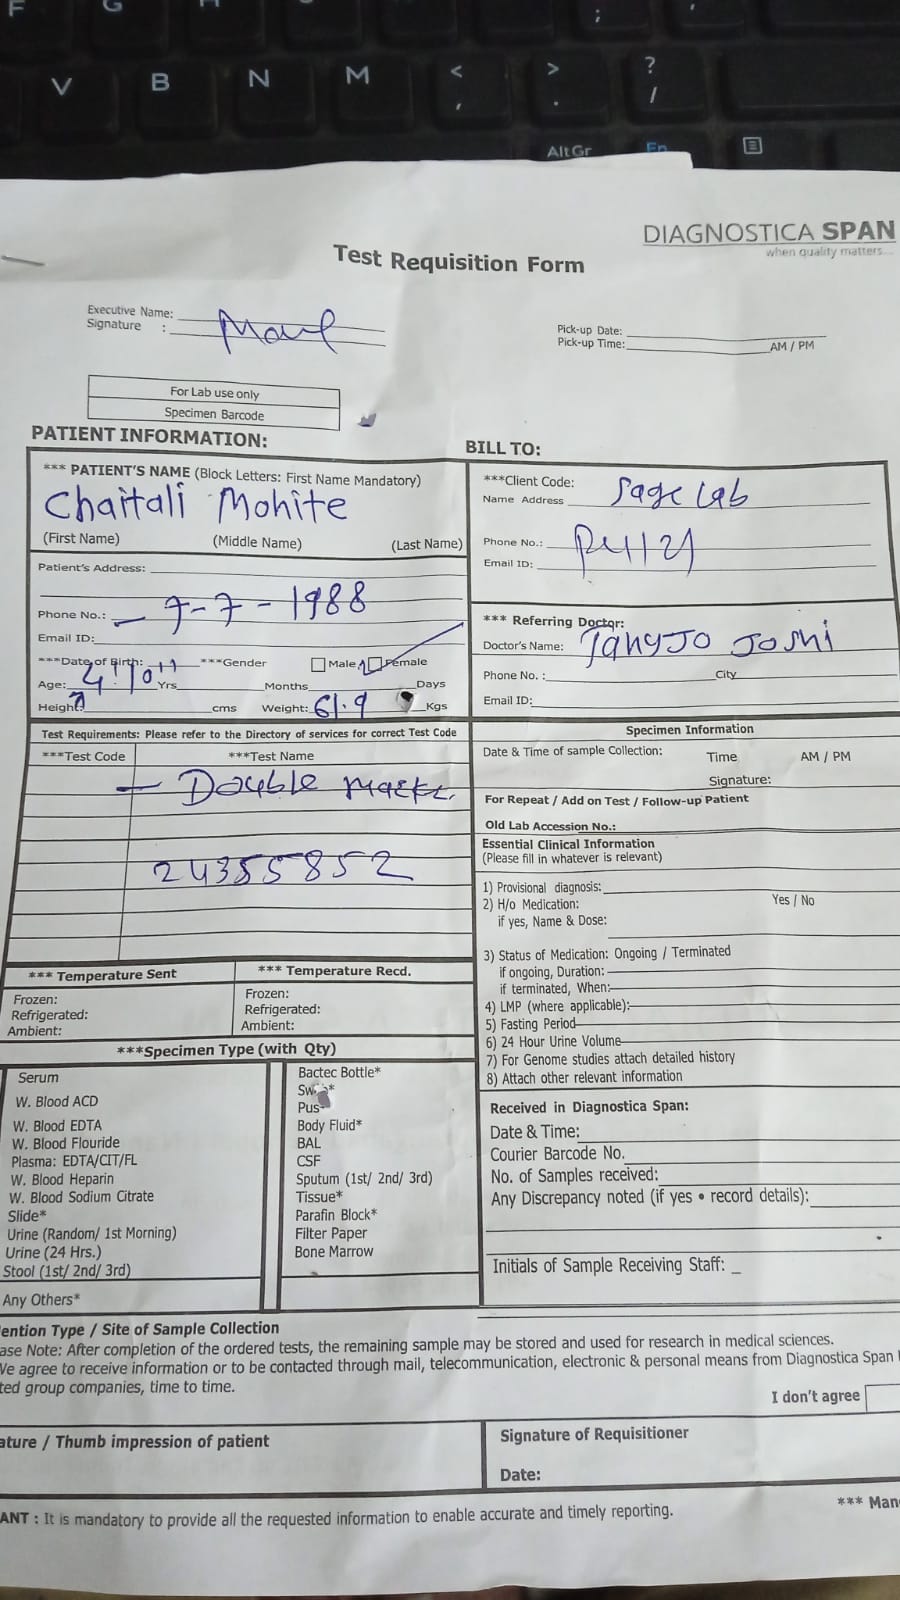 F G H ;
V B N M < , > . ? /
AltGr Fn
DIAGNOSTICA SPAN
when quality matters...
Test Requisition Form
Executive Name:
Signature :
Pick-up Date:
Pick-up Time: AM / PM
For Lab use only
Specimen Barcode
PATIENT INFORMATION:
*** PATIENT'S NAME (Block Letters: First Name Mandatory)
Chaitali Mohite
(First Name) (Middle Name) (Last Name)
Patient's Address:
Phone No.: – 7-7-1988
Email ID:
***Date of Birth: ***Gender Male Female
Age: Yrs Months Days
4'10"
Height: cms Weight: 61.9 Kgs
BILL TO:
***Client Code:
Name Address Sage Lab
Phone No.:
Email ID:
*** Referring Doctor:
Doctor's Name: Joshi
Phone No. : City
Email ID:
Test Requirements: Please refer to the Directory of services for correct Test Code
***Test Code ***Test Name
– Double
24355852
Specimen Information
Date & Time of sample Collection: Time AM / PM
Signature:
For Repeat / Add on Test / Follow-up Patient
Old Lab Accession No.:
Essential Clinical Information
(Please fill in whatever is relevant)
1) Provisional diagnosis:
2) H/o Medication: Yes / No
if yes, Name & Dose:
3) Status of Medication: Ongoing / Terminated
if ongoing, Duration:
if terminated, When:
4) LMP (where applicable):
5) Fasting Period
6) 24 Hour Urine Volume
7) For Genome studies attach detailed history
8) Attach other relevant information
*** Temperature Sent *** Temperature Recd.
Frozen: Frozen:
Refrigerated: Refrigerated:
Ambient: Ambient:
***Specimen Type (with Qty)
Serum
W. Blood ACD
W. Blood EDTA
W. Blood Flouride
Plasma: EDTA/CIT/FL
W. Blood Heparin
W. Blood Sodium Citrate
Slide*
Urine (Random/ 1st Morning)
Urine (24 Hrs.)
Stool (1st/ 2nd/ 3rd)
Any Others*
Bactec Bottle*
Pus
Body Fluid*
BAL
CSF
Sputum (1st/ 2nd/ 3rd)
Tissue*
Parafin Block*
Filter Paper
Bone Marrow
Received in Diagnostica Span:
Date & Time:
Courier Barcode No.
No. of Samples received:
Any Discrepancy noted (if yes • record details):
Initials of Sample Receiving Staff:
ention Type / Site of Sample Collection
ase Note: After completion of the ordered tests, the remaining sample may be stored and used for research in medical sciences.
We agree to receive information or to be contacted through mail, telecommunication, electronic & personal means from Diagnostica Span
ted group companies, time to time.
I don't agree
ature / Thumb impression of patient
Signature of Requisitioner
Date:
*** Man
ANT : It is mandatory to provide all the requested information to enable accurate and timely reporting.